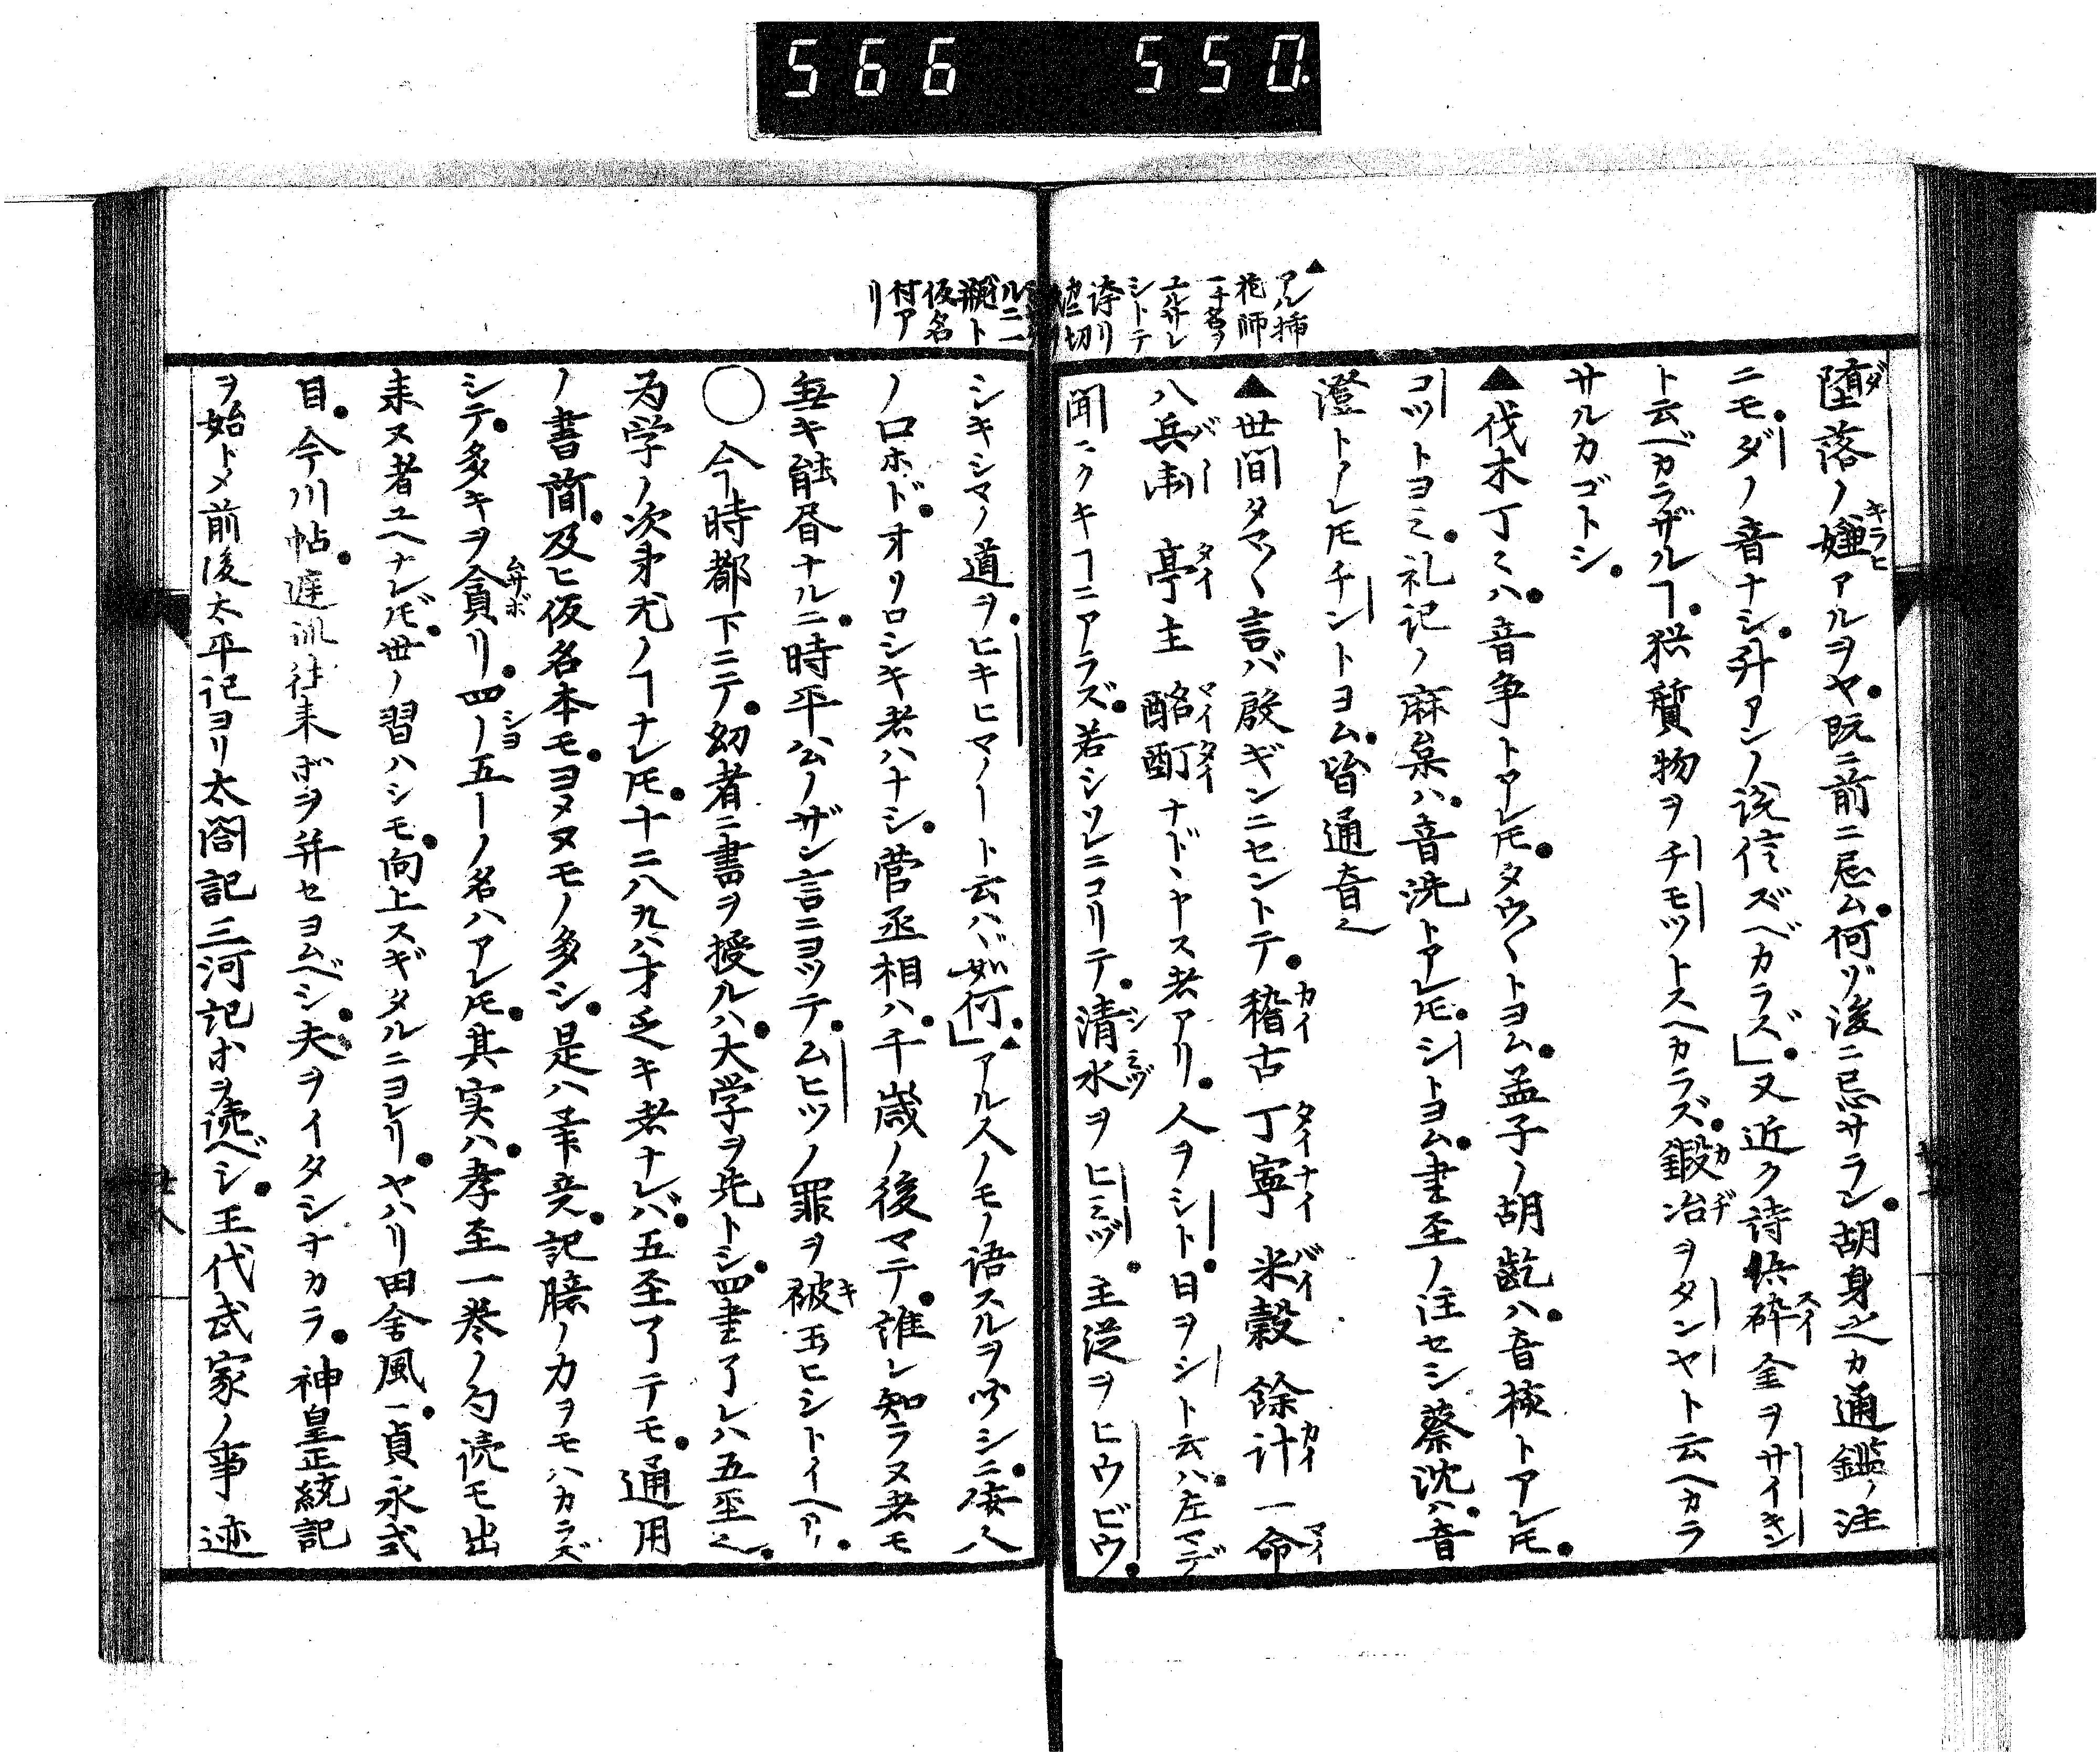 566 550
▲アル挿
花師
一子名ヲ
ユルサレ
シトテ
誇リ
カニ切
ルニ
瓶ト
仮名
付ア
リ
堕落ノ嫌アルヲヤ既ニ前ニ忌ム何ゾ後ニ忌サラン胡身之カ通鑑ノ注
ニモダノ音ナシ升アンノ説信ズベカラズ」又近ク詩 砕金ヲサイキン
ト云ベカラザルヿ猶質物ヲチモツトスヘカラズ鍛冶ヲタンヤト云ヘカラ
サルカゴトシ
▲伐木丁々ハ音争トアレ𪜈タウ〱トヨム孟子ノ胡齕ハ音核トアレ𪜈
コツトヨミ礼記ノ麻枲ハ音洗トアレ𪜈シトヨム書至ノ注セシ蔡沈ハ音
澄トアレ𪜈チントヨム皆通音也
▲世間タマ〱言バ慇ギンニセントテ稽古 丁寧 米穀 餘計 一命
八兵衛 亭主 酩酊ナドヽヤス者アリ人ヲシト日ヲシト云ハ左マデ
聞ニクキヿニアラズ若シソレニコリテ清水ヲヒミヅ主従ヲヒウビウ
シキシマノ道ヲヒキヒマノート云ハヾ如何」▲アル人ノモノ語スルヲ吵シニ 八
ノ口ホドオソロシキ者ハナシ菅丞相ハ千歳ノ後マテ誰レ知ラヌ者モ
無キ能昼ナルニ時平公ノザン言ニヨツテムヒツノ罪ヲ被玉ヒシトイヘリ
○今時都下ニテ幼者ニ書ヲ授ルハ大学ヲ先トシ四書了レハ五至也
為学ノ次第尤ノヿナレ𪜈十二八九ハ才乏キ者ナレバ五至了テモ通用
ノ書簡及ヒ仮名本モヨメヌモノ多シ是ハ幸 記臆ノカヲモハカラズ
シテ多キヲ貪リ四ー五ーノ名ハアレ𪜈其実ハ孝至一巻ノ句読モ出
来ヌ者ユヘナレ𪜈世ノ習ハシモ向上スギタルニヨレリヤハリ田舎風ニ貞永式
目今川帖庭訓往来ホヲ并セヨムベシ夫ヲイタシナカラ神皇正統記
ヲ始トメ前後太平記ヨリ太閤記三河記ホヲ読ベシ王代武家ノ事迹